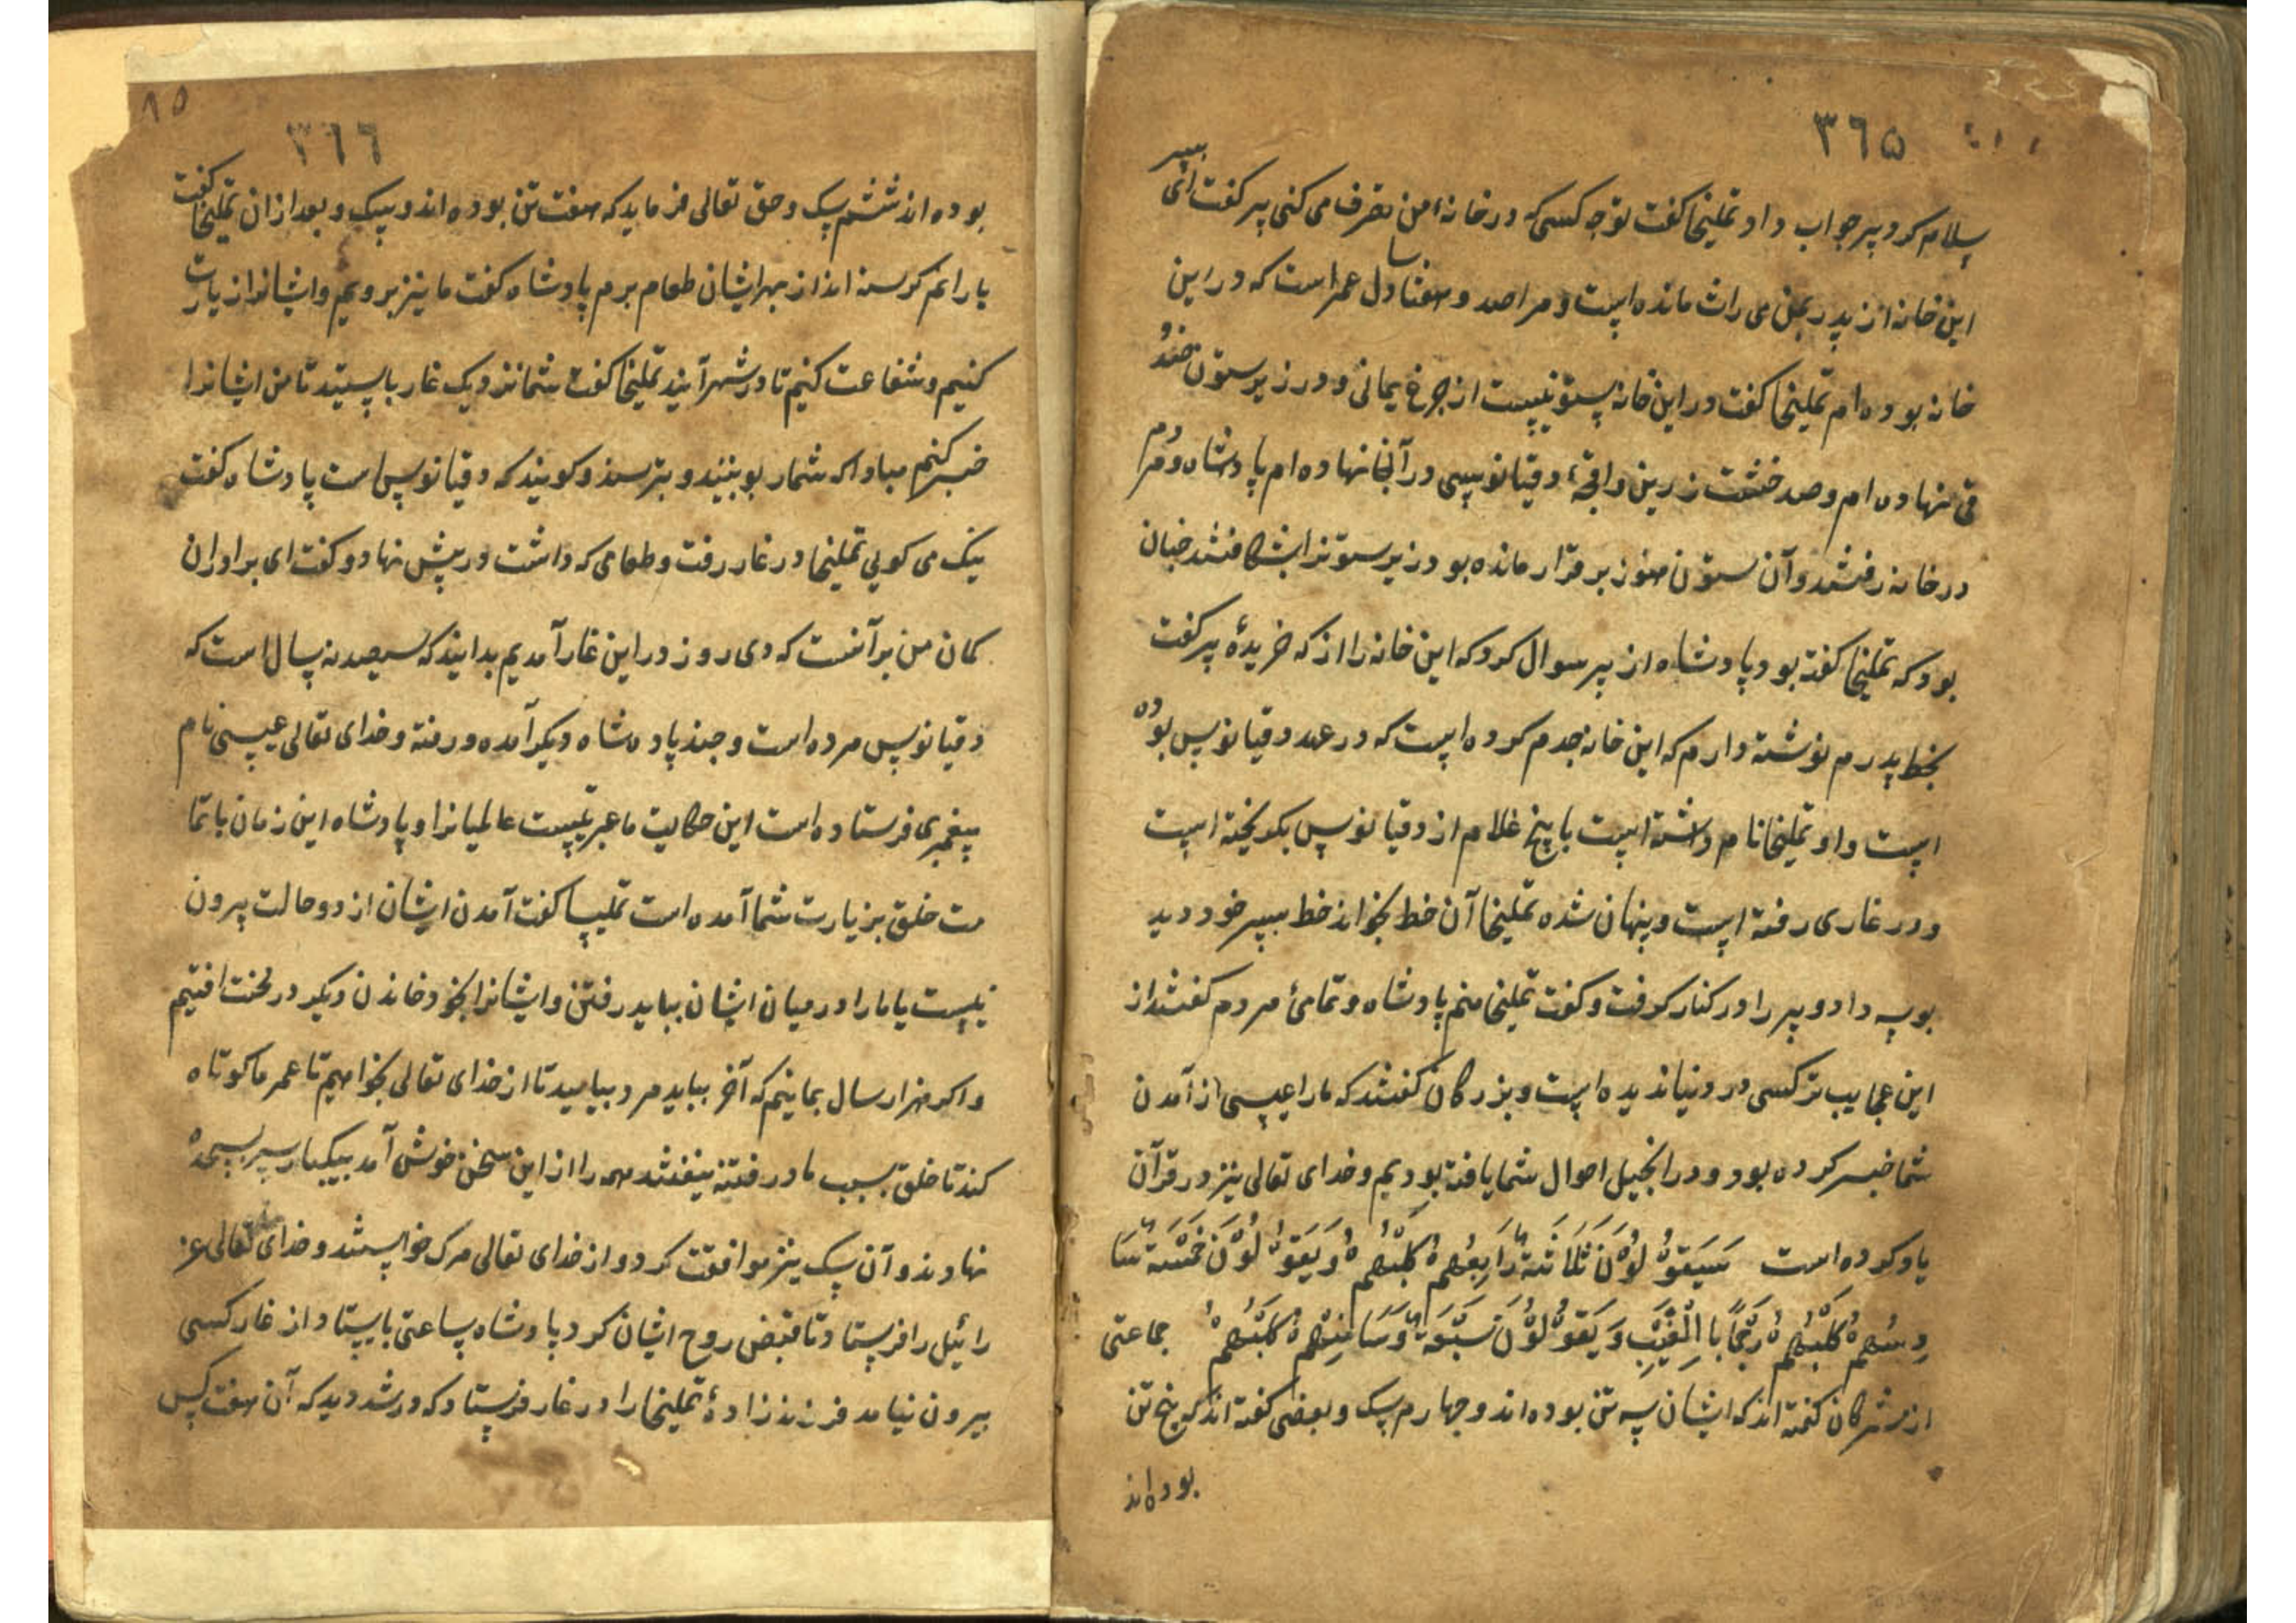 ٣٦٥
سلام کرد پیر جواب داد تملیخا کفت تو چه کسی که در خانهٔ من تصرف می کنی پیر کفت ای پسر
این خانه از پدر بمن می راث مانده است و مرا صد و هفتاد سال عمر است که در این
خانه بوده ام تملیخا کفت در این خانه ستونیست از جرغ یمانی و در زیر ستون
نهاده ام و صد خشت زرین و اقچهٔ دقیانوسی در آنجا نهاده ام پادشاه و مردم
در خانه رفتند و آن ستون هنوز بر قرار مانده بود زیر ستونرا بشکافتند چنان
بود که تملیخا کفته بود پادشاه از پیر سوال کرد که این خانه را از که خریدهٔ پیر کفت
بخط پدرم نوشته دارم که این خانه جدم کرده است که در عهد دقیانوس بوده
است و او تملیخا نام داشته است با پنج غلام از دقیانوس بکریخته است
و در غاری رفته است و پنهان شده تملیخا آن خط بخواند خط پسر خود دید
بوسه داد و پیر را در کنار کرفت و کفت تملیخا منم پادشاه و تمامئ مردم کفتند از
این عجایب تر کسی در دنیا ندیده است و بزرکان کفتند که ما را عیسی از آمدن
شما خبر کرده بود و در انجیل احوال شما یافته بودیم و خدای تعالی نیز در قرآن
یاد کرده است سَیَقُوْلُوْنَ ثَلَاثَةٌ رَابِعُهُمْ کَلْبُهُمْ وَیَقُوْلُوْنَ خَمْسَةٌ سَا
دِسُهُمْ کَلْبُهُمْ رَجْمًا بِالْغَیْبِ وَیَقُوْلُوْنَ سَبْعَةٌ وَثَامِنُهُمْ کَلْبُهُمْ جماعتی
از مشرکان کفته اند که ایشان سه تن بوده اند و چهارم سک و بعضی کفته اند که پنج تن
بوده اند
٩٥
٣٦٦
بوده اند ششم سک و حق تعالی فرماید که هفت تن بوده اند و سک و بعد از ان تملیخا کفت
یارانم کرسنه اند از بهر ایشان طعام برم پادشاه کفت ما نیز برویم و ایشانرا زیارت
کنیم و شفاعت کنیم تا در شهر آیند تملیخا کفت شما نزدیک غار باستید تا من ایشانرا
خبر کنم مبادا که شمار بوبینند و بترسند و کویند که دقیانوس است پادشاه کفت
نیک می کویی تملیخا در غار رفت و طعامی که داشت در پیش نهاد و کفت ای برادران
کمان من برآنست که دی روز در این غار آمدیم بدانید که سیصد نه سال است که
دقیانوس مرده است و چند پادشاه دیکر آمده و رفته و خدای تعالی عیسی نام
پیغمبری فرستاده است این حکایت ما عبرتیست عالمیانرا و پادشاه این زمان با تما
مت خلق بزیارت شما آمده است تملیسا کفت آمدن ایشان از دو حالت بیرون
نیست یا ما را در میان ایشان بباید رفتن و ایشانرا بخود خاندن دیکر در محنت افتیم
و اکر هزار سال بمانیم که آخر بباید مرد بیایید تا از خدای تعالی بخواهیم تا عمر ما کوتاه
کند تا خلق بسبب ما در فتنه نیفتند همه را از این سخن خوش آمد بیکبار سر بسجده
نهادند و آن سک نیز موافقت کرد و از خدای تعالی مرک خواستند و خدای تعالی عز
رائیل را فرستاد تا قبض روح ایشان کرد پادشاه ساعتی بایستاد از غار کسی
بیرون نیامد فرزند زادهٔ تملیخا را در غار فرستاد که در شد دید که آن هفت کس